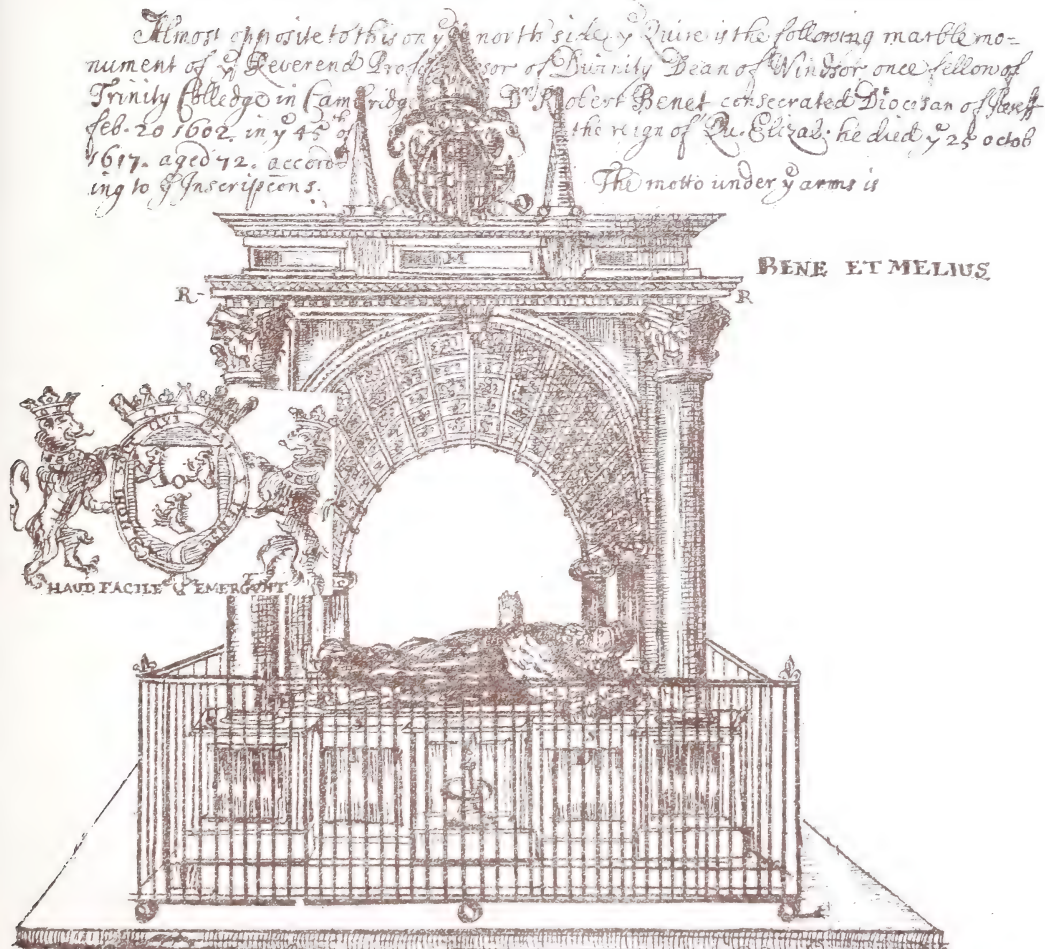 Almost opposite to this on yͤ north side yͤ Quire is the following marble mo=
nument of yͤ Reverend Professor of Divinity Dean of Windsor once fellow of
Trinity Colledge in Cambridg Dͬ Robert Benet consecrated Diocesan of
feb. 20 1602. in yͤ 45ͭͪ of the reign of Qu. Elizab: he died yͤ 25 octob
1617. aged 72. accord
ing to yͤ Inscripcons. The motto under yͤ arms is
BENE ET MELIUS
M
R R
QVI
HAUD FACILE EMERGVNT
S S